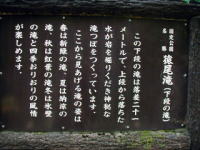 国定公園
名勝 猿尾滝(下段の滝)
この下段の滝は落差二十一
メートルで、上段から落ちた
水が岩を堀りくだき神秘な
滝つぼをつくっています。
ここから見あげる滝の姿は
春は新緑の滝、夏は納涼の
滝、秋は紅葉の滝、冬は氷壁
の滝と四季おりおりの風情
が楽しめます。